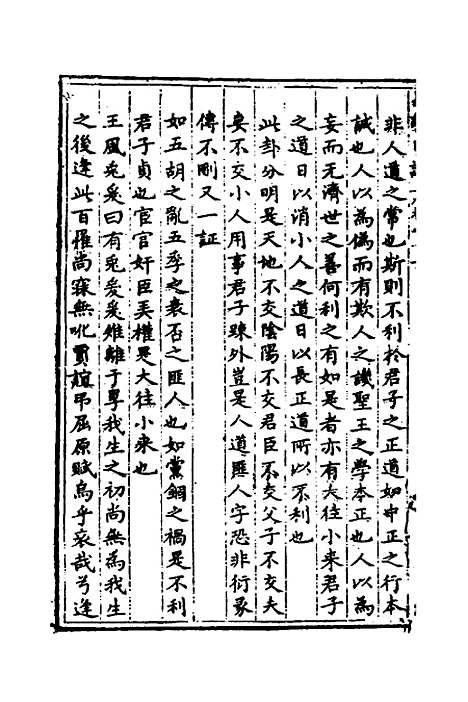 非人道之常也斯則不利於君子之正道如中正之行本
誠也人以為偽而有欺人之譏聖王之學本正也人以為
妄而无濟世之善何利之有如是者亦有大往小来君子
之道日以消小人之道日以長正道所以不利也
此卦分明是天地不交陰陽不交君臣不交父子不交夫
妻不交小人用事君子踈外豈是人道匪人字恐非衍彖
傳不刪又一証
如五胡之亂五季之衰否之匪人也如黨錮之禍是不利
君子貞也宦官奸臣弄權是大往小来也
王風兎爰曰有兎爰爰雉離于罦我生之初尚無為我生
之後逢此百罹尚寐無吪賈誼弔屈原賦烏乎哀哉兮逢